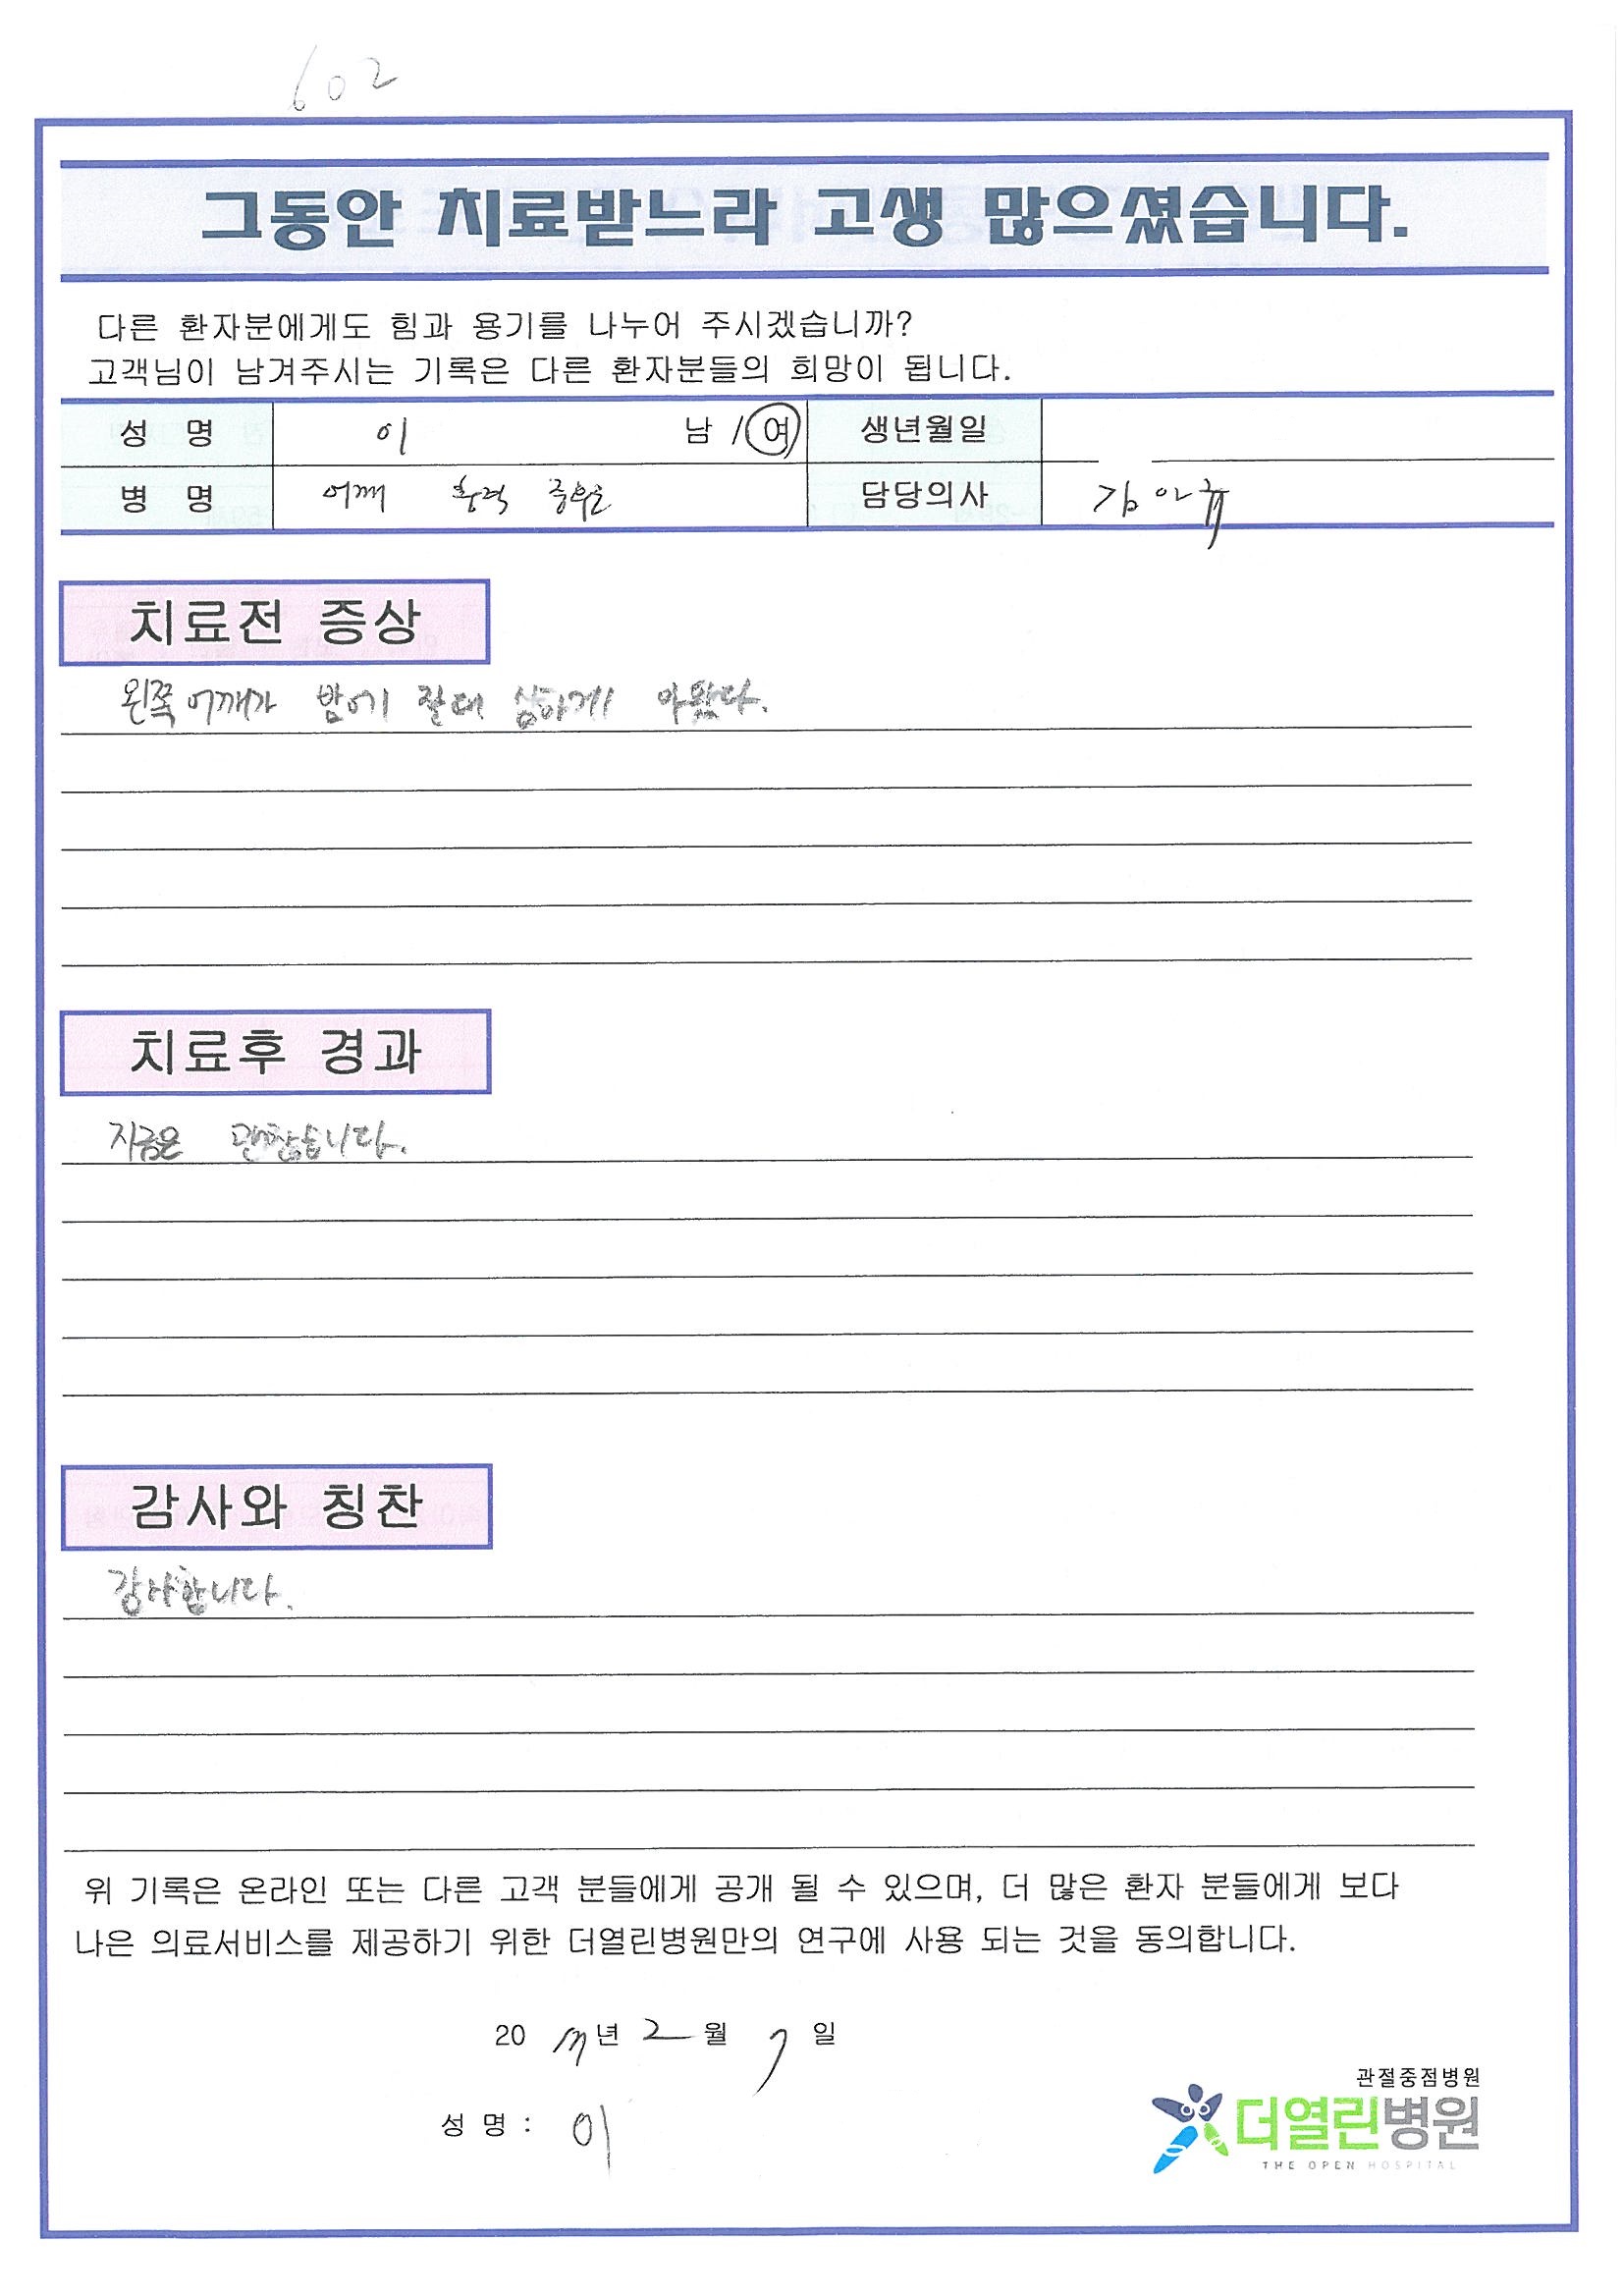 602
그동안 치료받느라 고생 많으셨습니다.
다른 환자분에게도 힘과 용기를 나누어 주시겠습니까?
고객님이 남겨주시는 기록은 다른 환자분들의 희망이 됩니다.
성 명 이 남 / 여 생년월일
병 명 어깨 충격 증후군 담당의사 김
치료전 증상
왼쪽 어깨가 밤에 잘때 심하게 아팠다.
치료후 경과
지금은 괜찮습니다.
감사와 칭찬
감사합니다.
위 기록은 온라인 또는 다른 고객 분들에게 공개 될 수 있으며, 더 많은 환자 분들에게 보다
나은 의료서비스를 제공하기 위한 더열린병원만의 연구에 사용 되는 것을 동의합니다.
20 년 2 월 7 일
성 명 : 이
관절중점병원
더열린병원
THE OPEN HOSPITAL